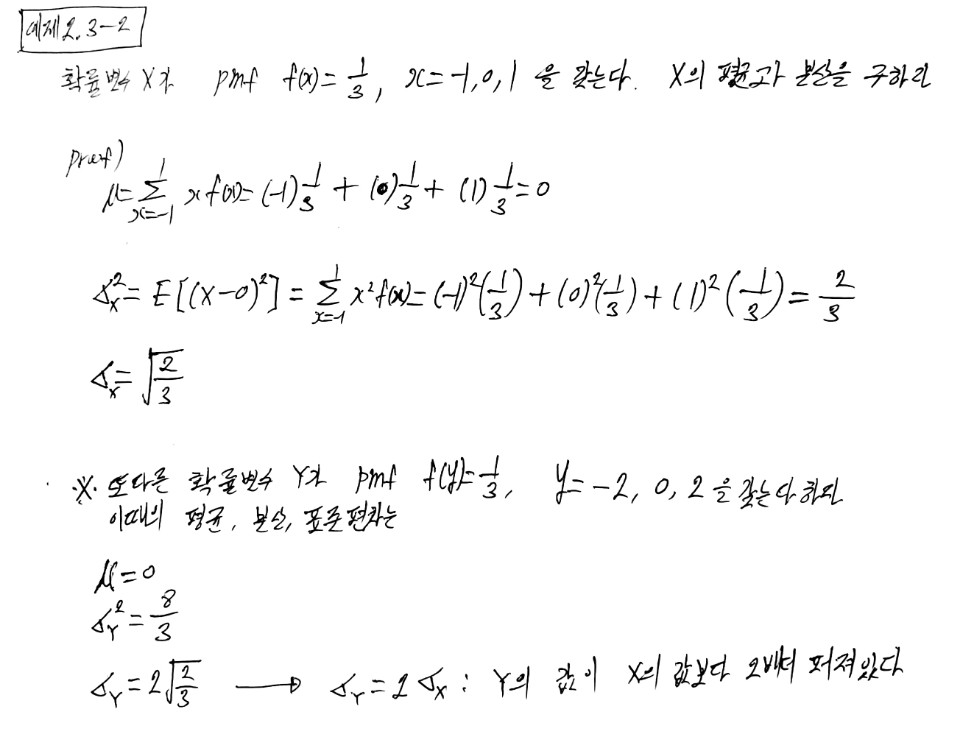 예제 2.3-2
확률변수 X가 pmf f(x)=1/3, x=-1,0,1 을 갖는다. X의 평균과 분산을 구하라
proof)
μ=∑_{x=-1}^{1} x f(x)= (-1)1/3 + (0)1/3 + (1)1/3=0
σ_x^2= E[(X-0)^2] = ∑_{x=-1}^{1} x^2 f(x)= (-1)^2(1/3) + (0)^2(1/3) + (1)^2(1/3) = 2/3
σ_x= √(2/3)
※. 또다른 확률변수 Y가 pmf f(y)=1/3, y=-2, 0, 2 을 갖는다 하자
이때의 평균, 분산, 표준편차는
μ=0
σ_Y^2 = 8/3
σ_Y=2√(2/3) → σ_Y=2σ_X : Y의 값이 X의 값보다 2배더 퍼져있다